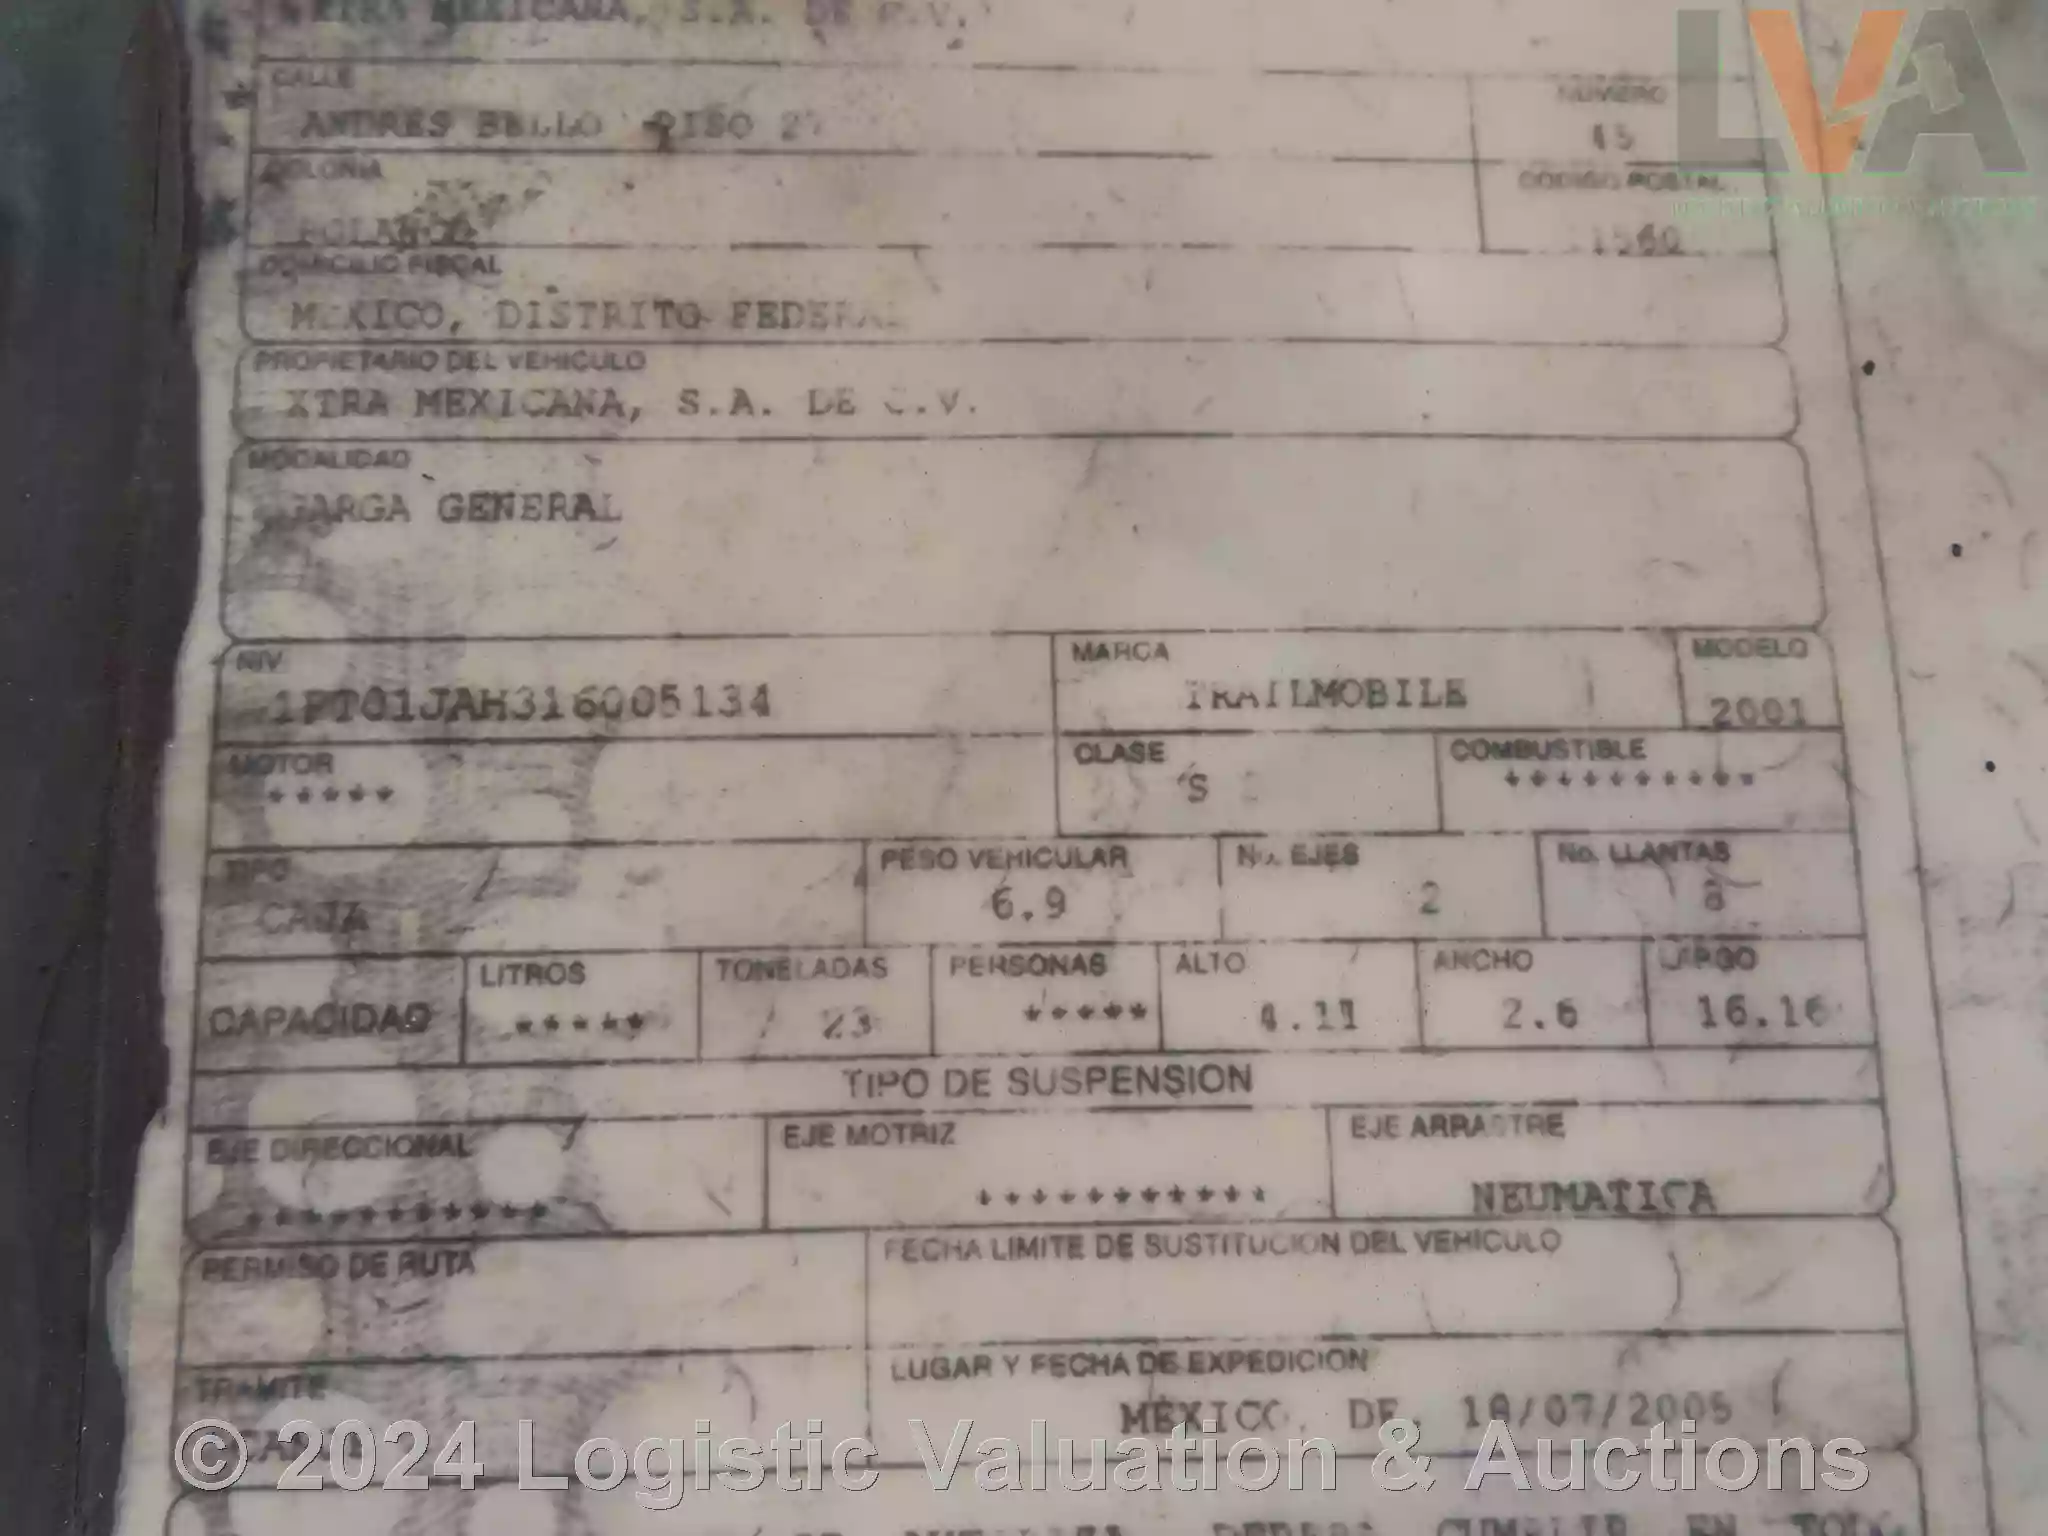 XTRA MEXICANA, S.A. DE C.V.
CALLE
NUMERO
ANDRES BELLO PISO 2
45
COLONIA
CODIGO POSTAL
POLANCO
1560
DOMICILIO FISCAL
MEXICO, DISTRITO FEDERAL
PROPIETARIO DEL VEHICULO
XTRA MEXICANA, S.A. DE C.V.
MODALIDAD
CARGA GENERAL
NIV MARCA MODELO
1PT01JAH316005134 TRAILMOBILE 2001
MOTOR CLASE COMBUSTIBLE
***** S **********
TIPO PESO VEHICULAR No. EJES No. LLANTAS
CAJA 6.9 2 8
CAPACIDAD LITROS TONELADAS PERSONAS ALTO ANCHO LARGO
***** 23 ***** 4.11 2.6 16.16
TIPO DE SUSPENSION
EJE DIRECCIONAL EJE MOTRIZ EJE ARRASTRE
*********** *********** NEUMATICA
PERMISO DE RUTA FECHA LIMITE DE SUSTITUCION DEL VEHICULO
TRAMITE LUGAR Y FECHA DE EXPEDICION
MEXICO, DF, 18/07/2005
CUMPLIR EN TODO
LVA
© 2024 Logistic Valuation & Auctions